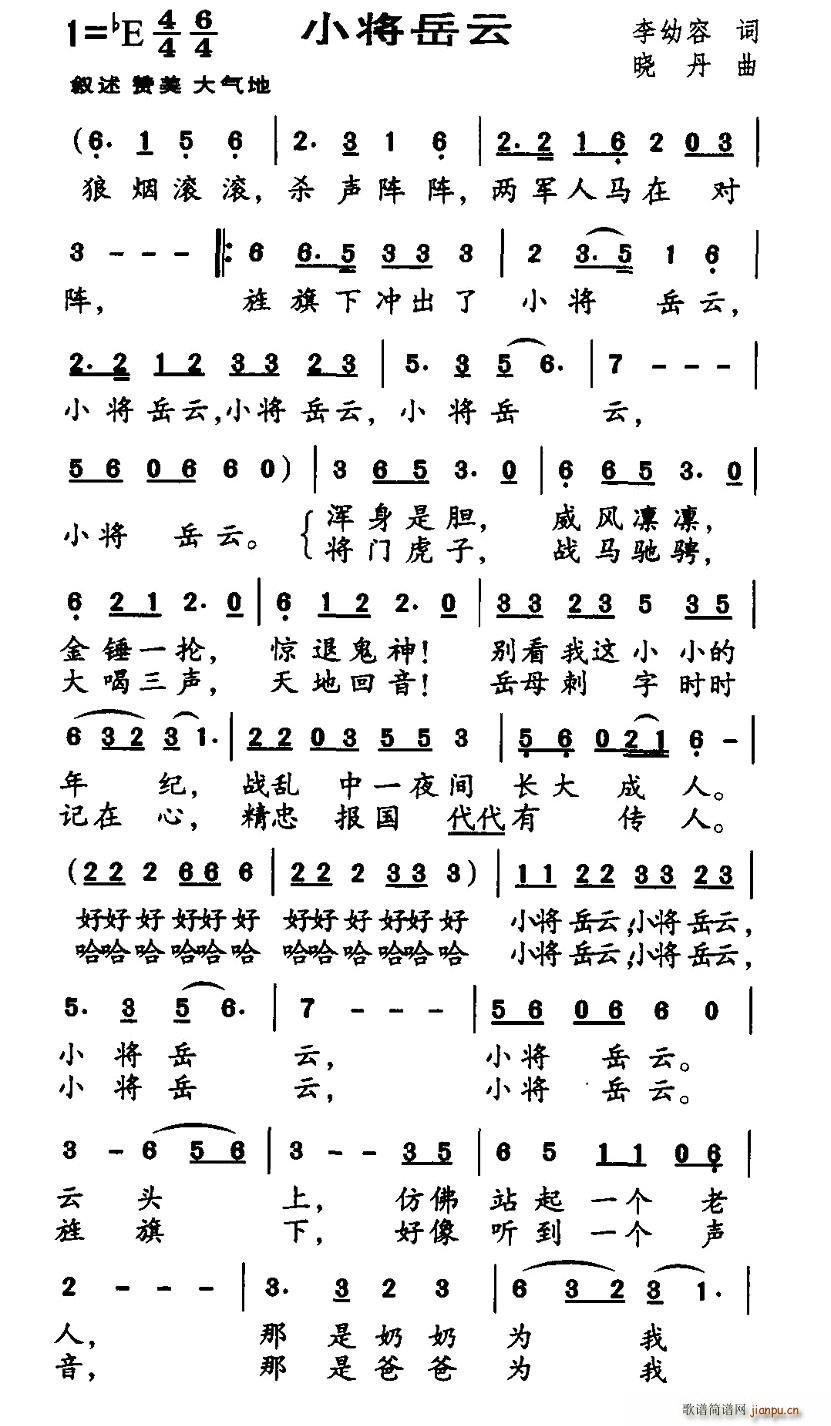 1=♭E 4/4 6/4 小将岳云 李幼容 词
叙述 赞美 大气地 晓丹 曲
(6. 1 5 6 | 2. 3 1 6 | 2. 2 1 6 2 0 3 |
狼烟滚滚, 杀声阵阵, 两军人马在 对
3 - - - |: 6 6. 5 3 3 3 3 | 2 3. 5 1 6 |
阵, 旌旗下冲出了 小将 岳云,
2. 2 1 2 3 3 2 3 | 5. 3 5 6. | 7 - - - |
小将岳云,小将岳云, 小将岳 云,
5 6 0 6 6 0) | 3 6 5 3. 0 | 6 6 5 3. 0 |
小将 岳云。 { 浑身是胆, 威风凛凛,
将门虎子, 战马驰骋,
6 2 1 2. 0 | 6 1 2 2. 0 | 3 3 2 3 5 3 5 |
金锤一抡, 惊退鬼神! 别看我这小小的
大喝三声, 天地回音! 岳母刺 字时时
6 3 2 3 1. | 2 2 0 3 5 5 3 | 5 6 0 2 1 6 - |
年 纪, 战乱 中一夜间 长大 成 人。
记在 心, 精忠 报国 代代有 传 人。
(2 2 2 6 6 6 | 2 2 2 3 3 3) | 1 1 2 2 3 3 2 3 |
好好好 好好好 好好好 好好好 小将岳云,小将岳云,
哈哈哈 哈哈哈 哈哈哈 哈哈哈 小将岳云,小将岳云,
5. 3 5 6. | 7 - - - | 5 6 0 6 6 0 |
小将岳 云, 小将 岳云。
小将岳 云, 小将 岳云。
3 - 6 5 6 | 3 - - 3 5 | 6 5 1 1 0 6 |
云 头 上, 仿佛 站起一个 老
旌 旗 下, 好像 听到一个 声
2 - - - | 3. 3 2 3 | 6 3 2 3 1. |
人, 那 是奶奶 为 我
音, 那 是爸爸 为 我
歌谱简谱网
jianpu.cn